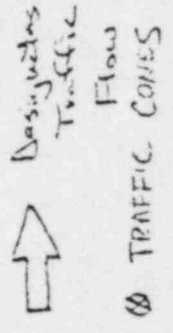 Dasignates
Traffic
Flow
TRAFFIC CONES